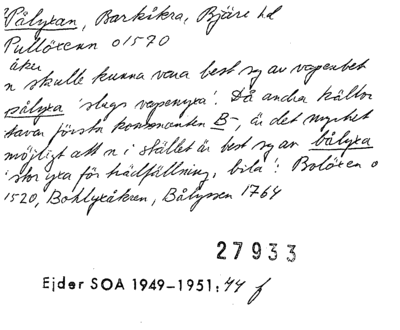 ?Pålyxan, Barkåkra, Bjäre hd
Pullöxenn o 1570
åker
n skulle kunna vara best sg av vapenbet
pålyxa 'slags vapenyxa'. Då andra källor
stavar första konsonanten B-, är det mycket
möjligt att n i stället är best sg av bålyxa
'stor yxa för trädfällning, bila': Bolöxen o
1520, Bohlyxåkren, Bålyxsen 1764
27933
Ejder SOA 1949-1951: 44 f